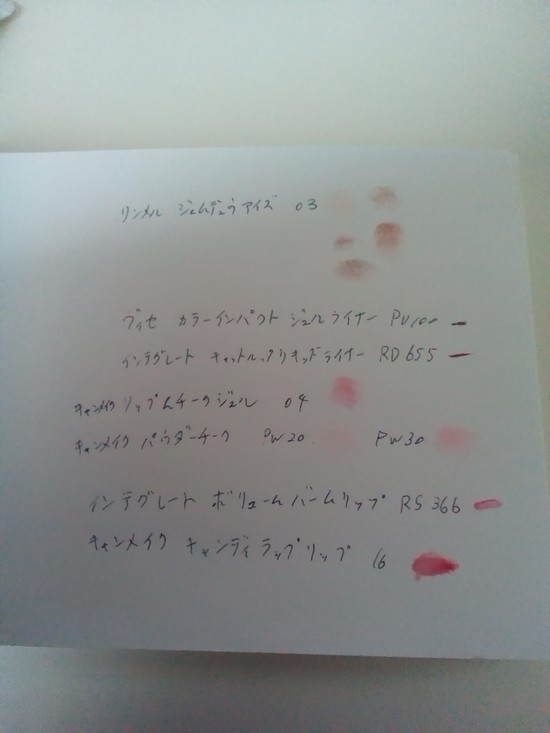 リンメル ジェムデュウアイズ 03
ヴィセ カラーインパクト ジェルライナー PU100
インテグレート キャットルックリキッドライナー RD655
キャンメイク リップ&チークジェル 04
キャンメイク パウダーチーク PW20 PW30
インテグレート ボリュームバームリップ RS366
キャンメイク キャンディラップリップ 16